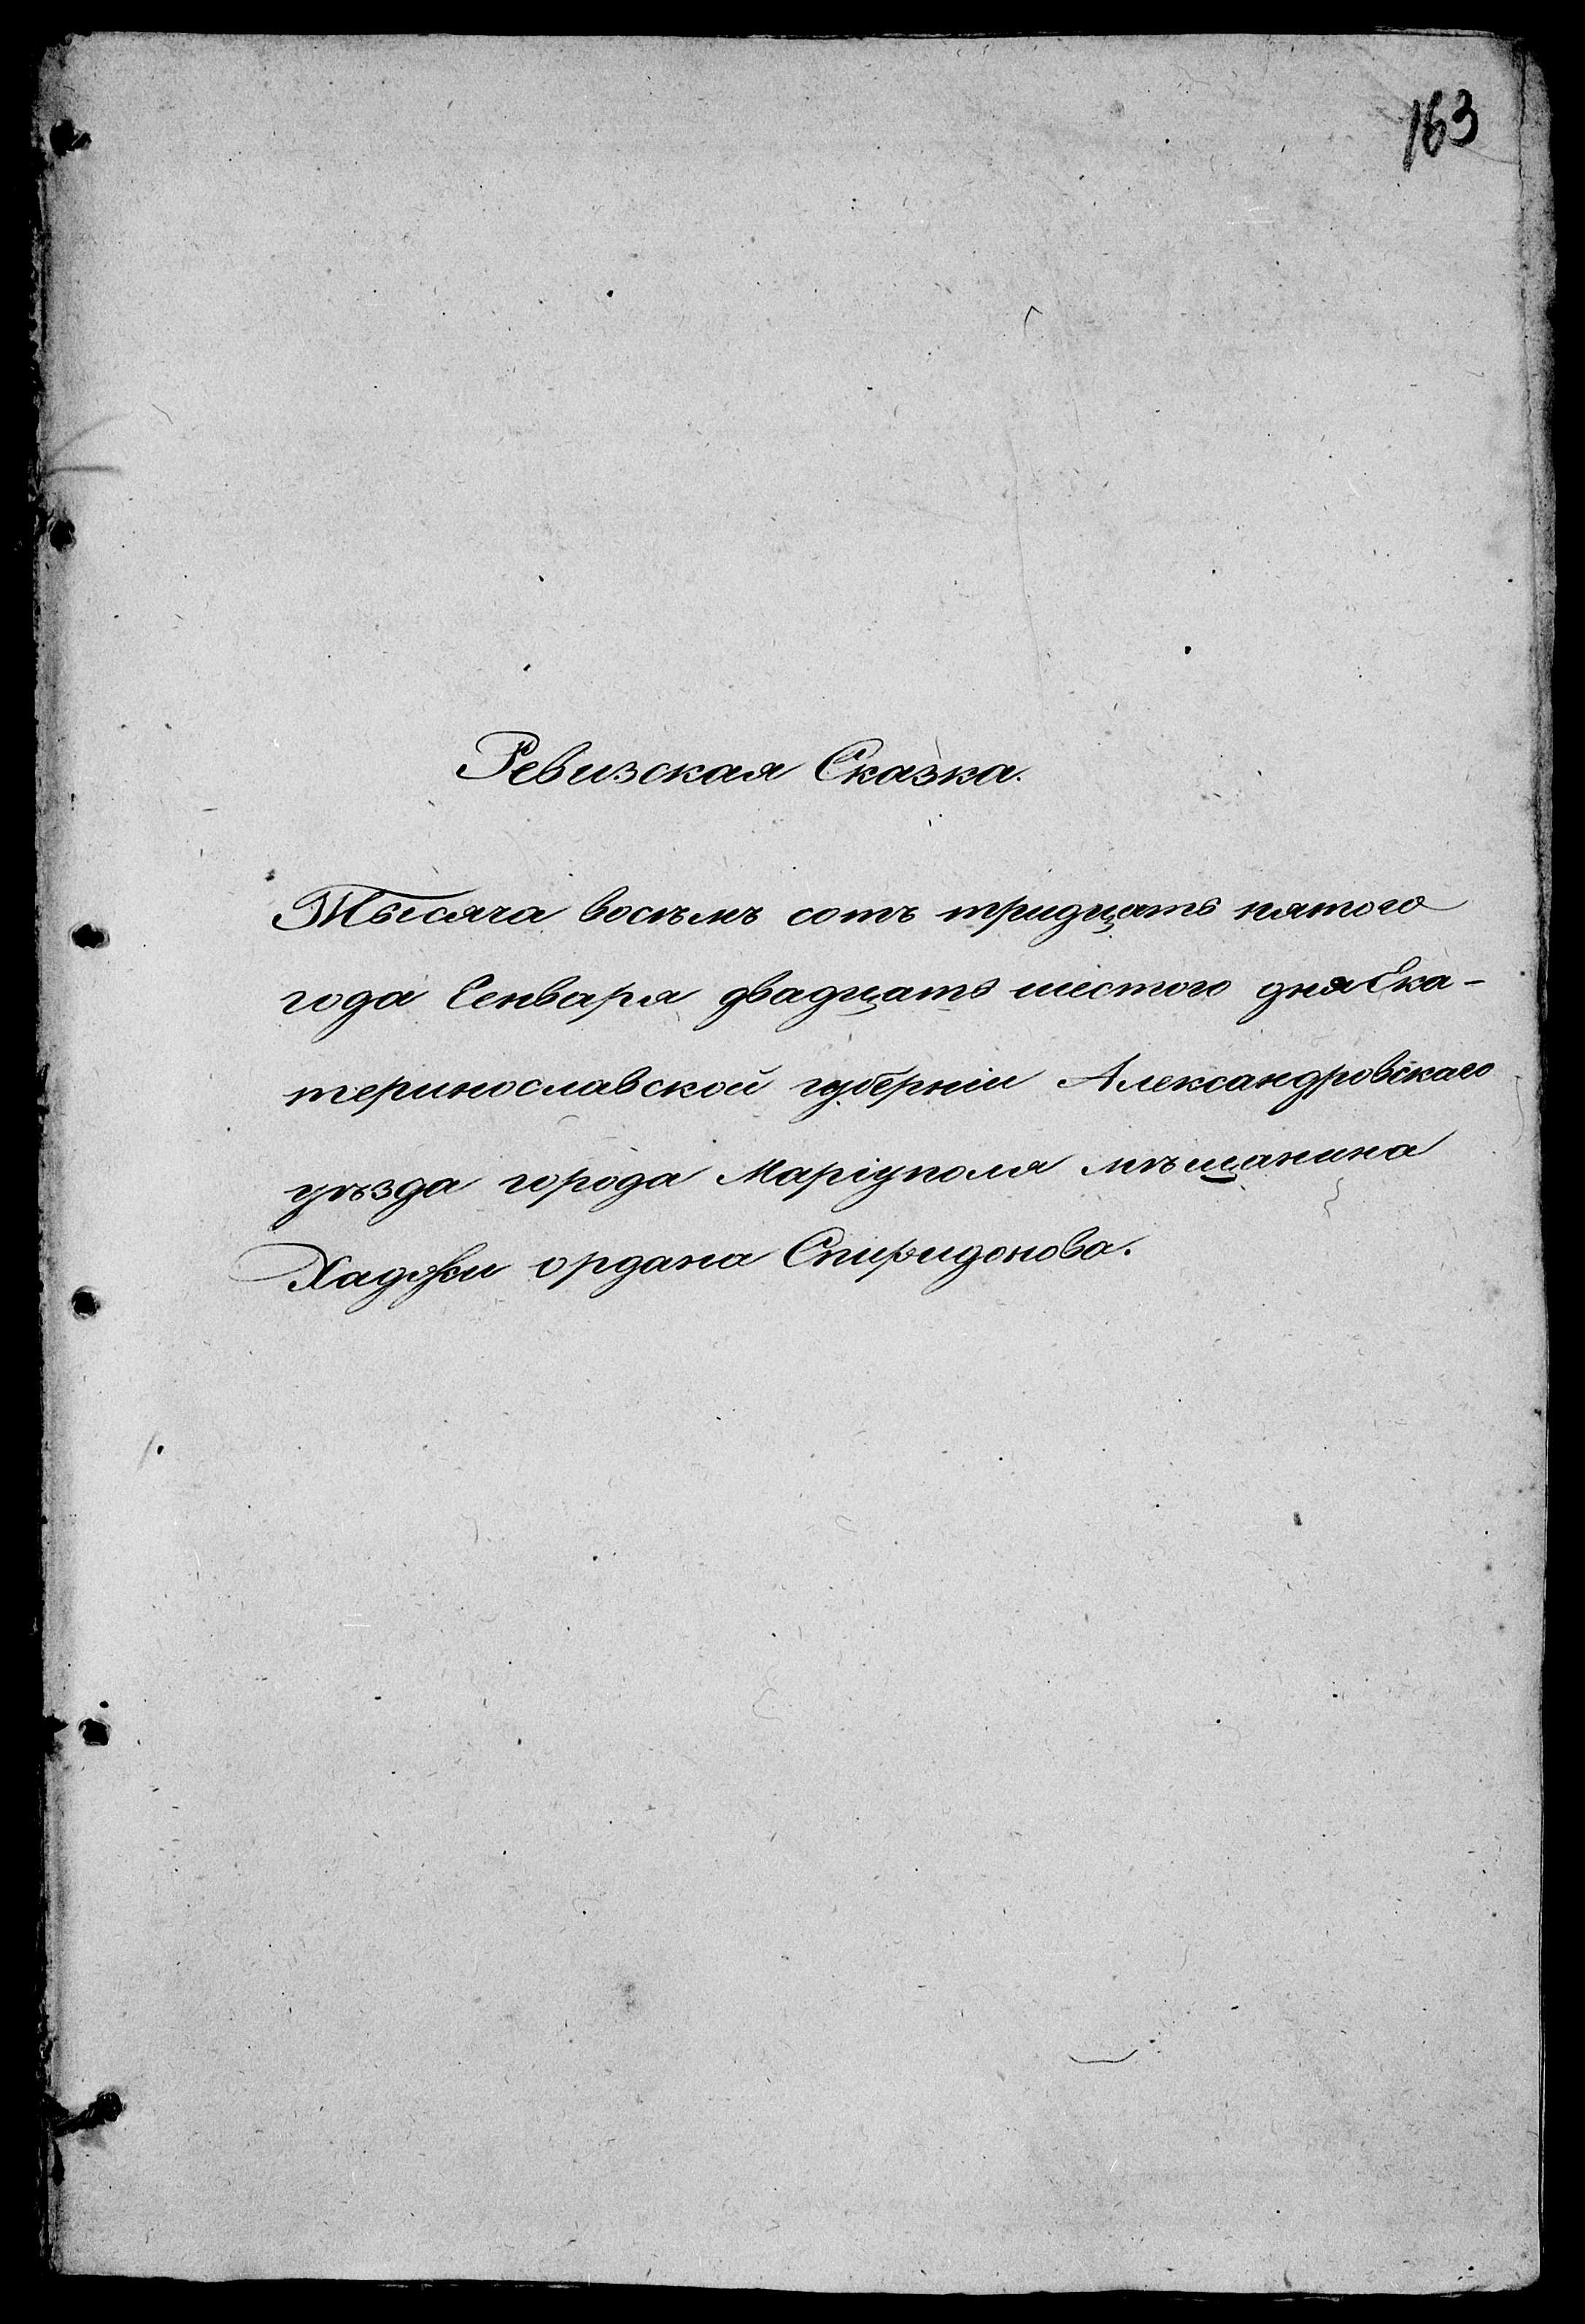 163
Ревизская Сказка.
Тысяча восъмъ сотъ тридцать пятого
года Генваря двадцать шестого дня Ека-
теринославской губерніи Александровскаго
уѣзда города Маріуполя мѣщанина
Хаджи ордана Спиридонова.